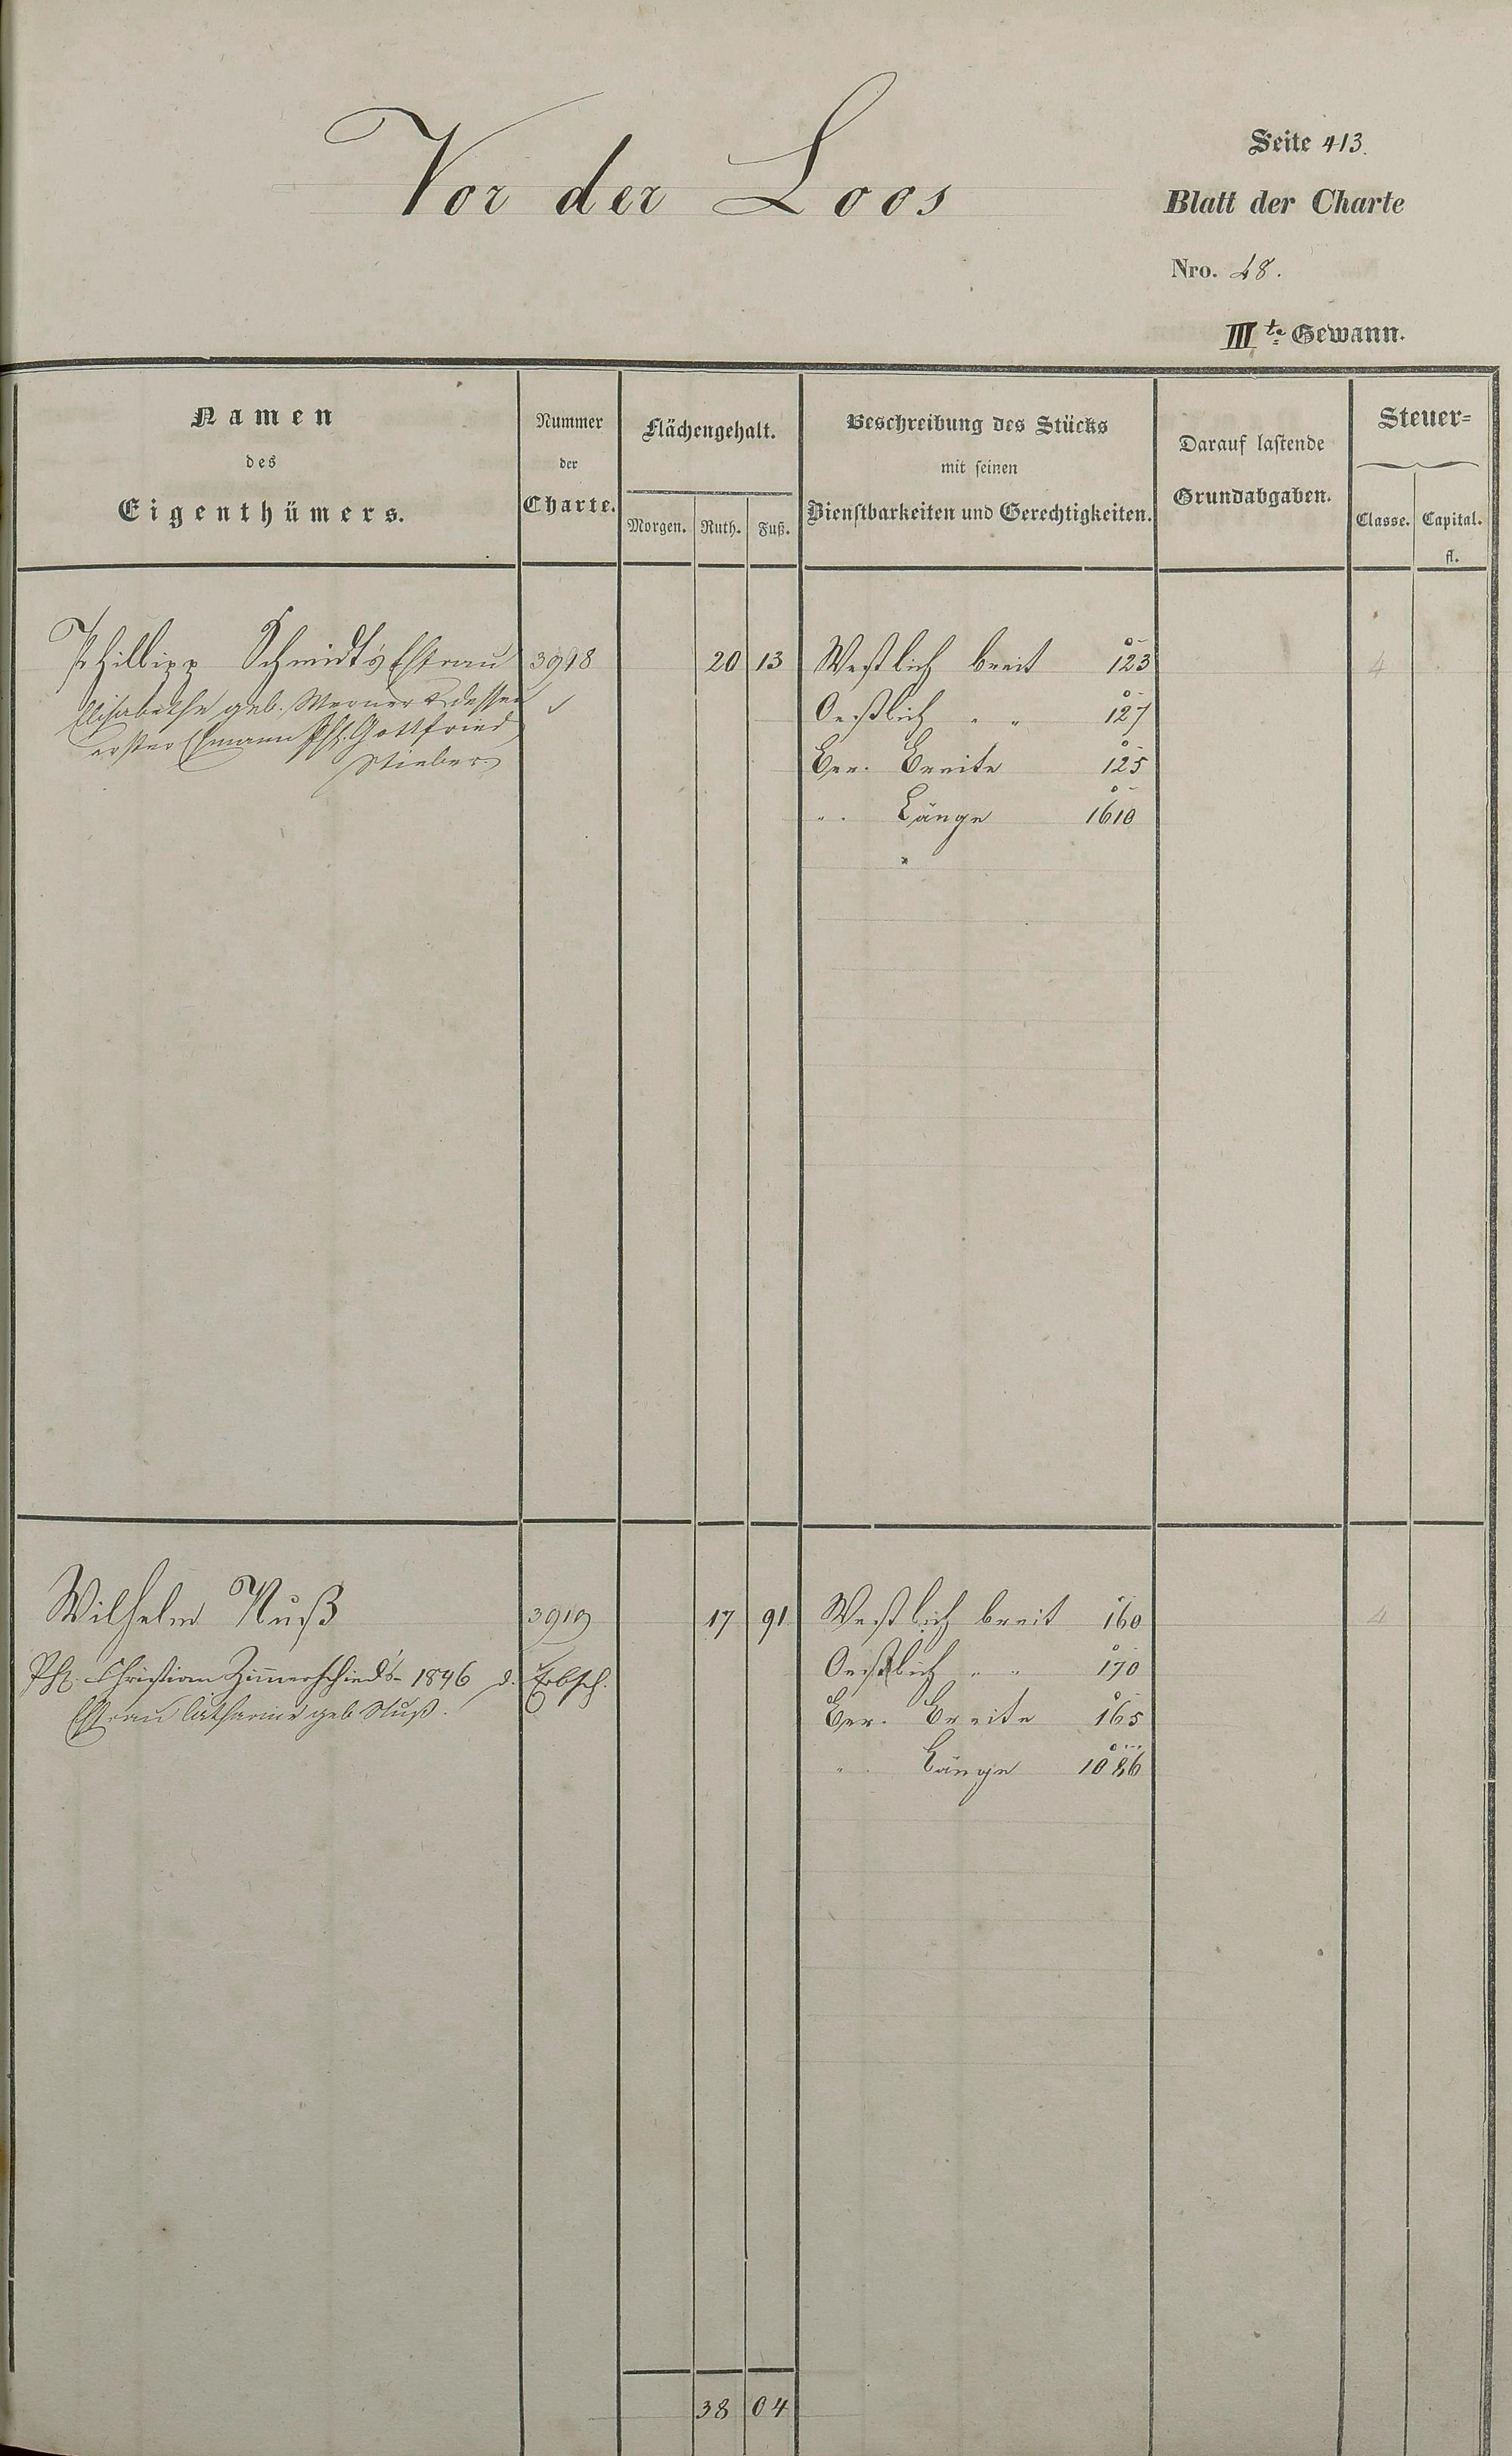 Vor der Loos
Seite 413.
Blatt der Charte
Nro. 48.
III te Gewann.
Namen
des
Eigenthümers.
Nummer
der
Charte.
Flächengehalt.
Morgen. Ruth. Fuß.
Beschreibung des Stücks
mit seinen
Dienstbarkeiten und Gerechtigkeiten.
Darauf lastende
Grundabgaben.
Steuer=
Classe. Capital.
fl.
Phillipp Schmidt's Ehfrau 3918 20 13 Westlich breit 123 4
Elisabethe geb. Werner & dessen
Oestlich " " 127
erster Ehmann Ph. Gottfried
Stieber
Ber. Breite 125
" Länge 1610
Wilhelm Nuß 3919 17 91 Westlich breit 160 4
Ph. Christian Zimmerschied's 1846 d. Erbsch. Oestlich " " 170
Ehfrau Catharine geb Nuß. Ber. Breite 165
" Länge 1086
38 04